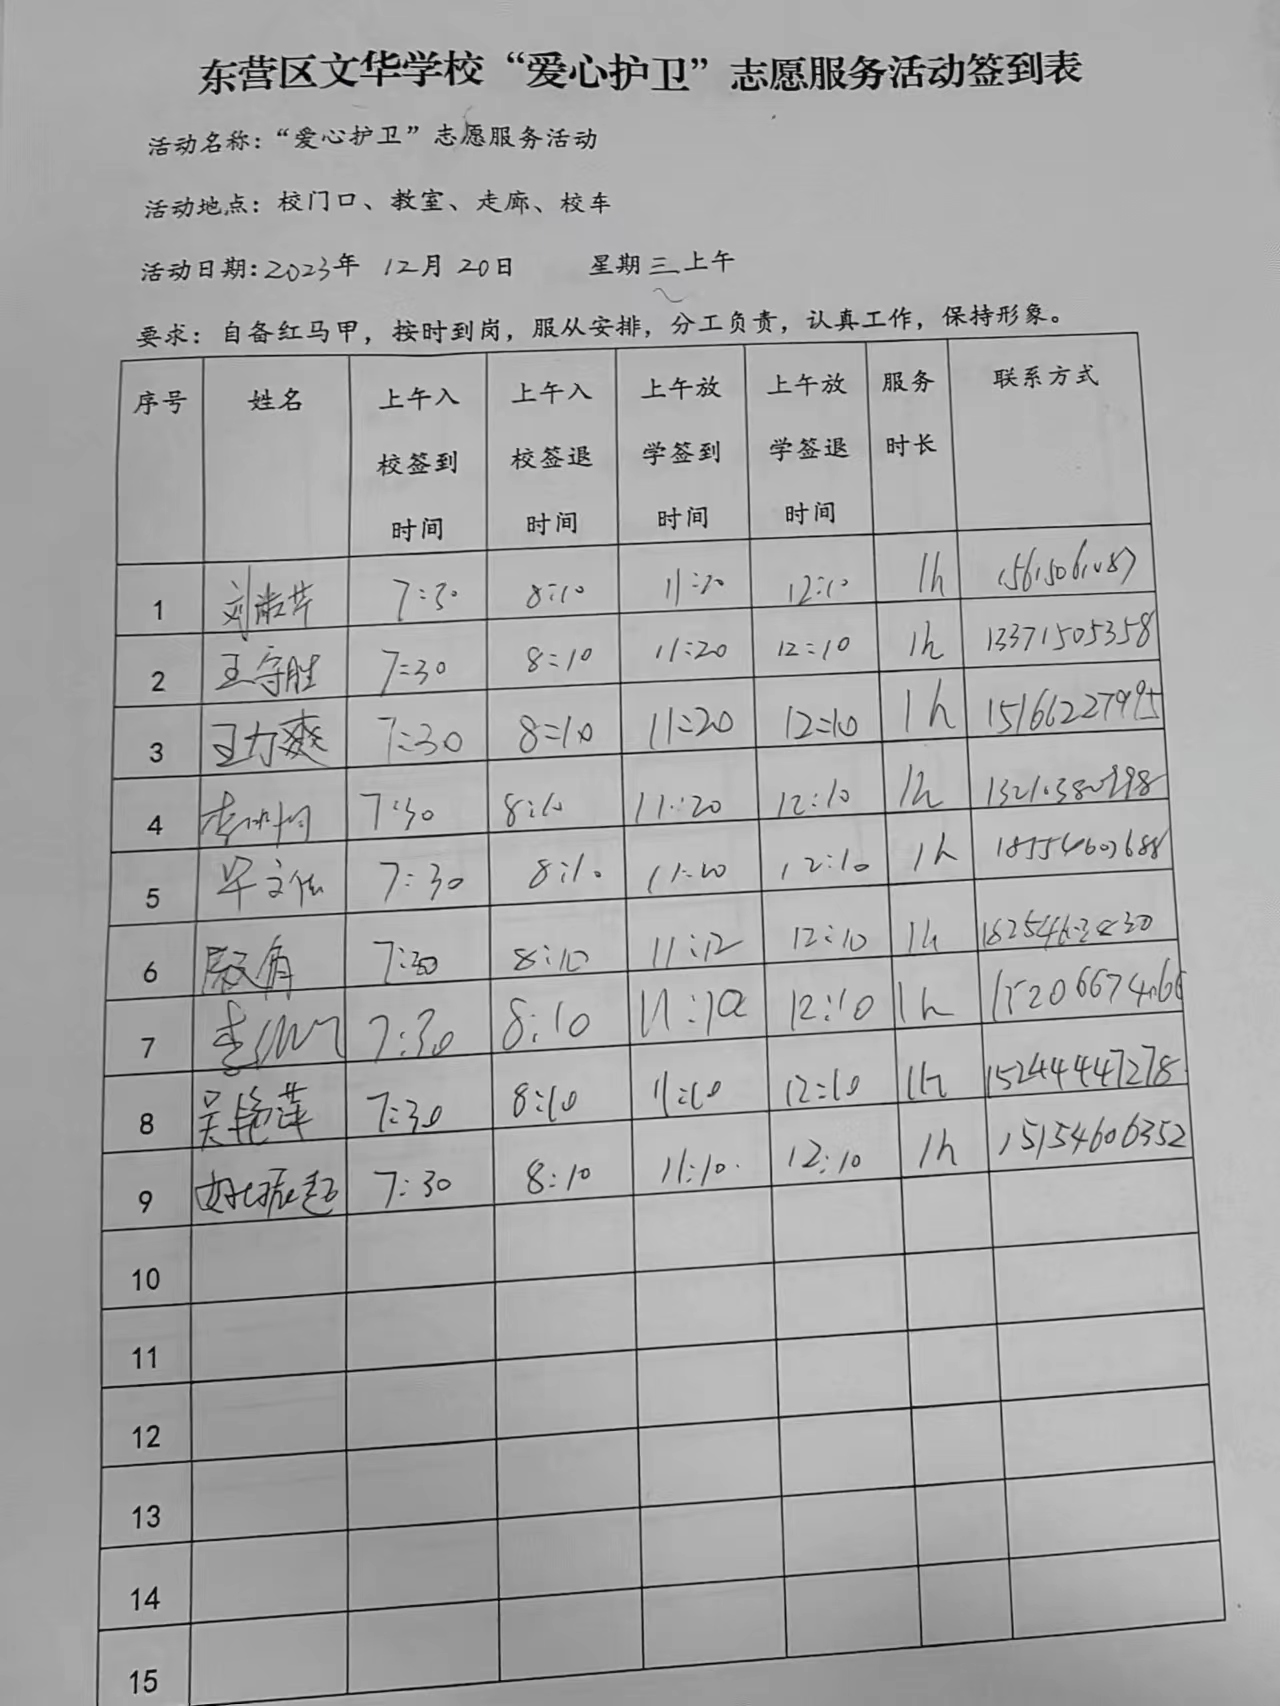 东营区文华学校“爱心护卫”志愿服务活动签到表
活动名称：“爱心护卫”志愿服务活动
活动地点：校门口、教室、走廊、校车
活动日期：2023年 12月 20日 星期三上午
要求：自备红马甲，按时到岗，服从安排，分工负责，认真工作，保持形象。
序号 姓名 上午入校签到时间 上午入校签退时间 上午放学签到时间 上午放学签退时间 服务时长 联系方式
1 7:30 8:10 11:20 12:10 1h
2 王守胜 7:30 8:10 11:20 12:10 1h 13371505358
3 王力爽 7:30 8:10 11:20 12:10 1h
4 7:30 8:10 11:20 12:10 1h
5 7:30 8:10 11:20 12:10 1h
6 7:30 8:10 11:12 12:10 1h
7 7:30 8:10 12:10 1h
8 吴艳萍 7:30 8:10 11:10 12:10 1h 15244447278
9 7:30 8:10 11:10 12:10 1h 15154606352
10
11
12
13
14
15